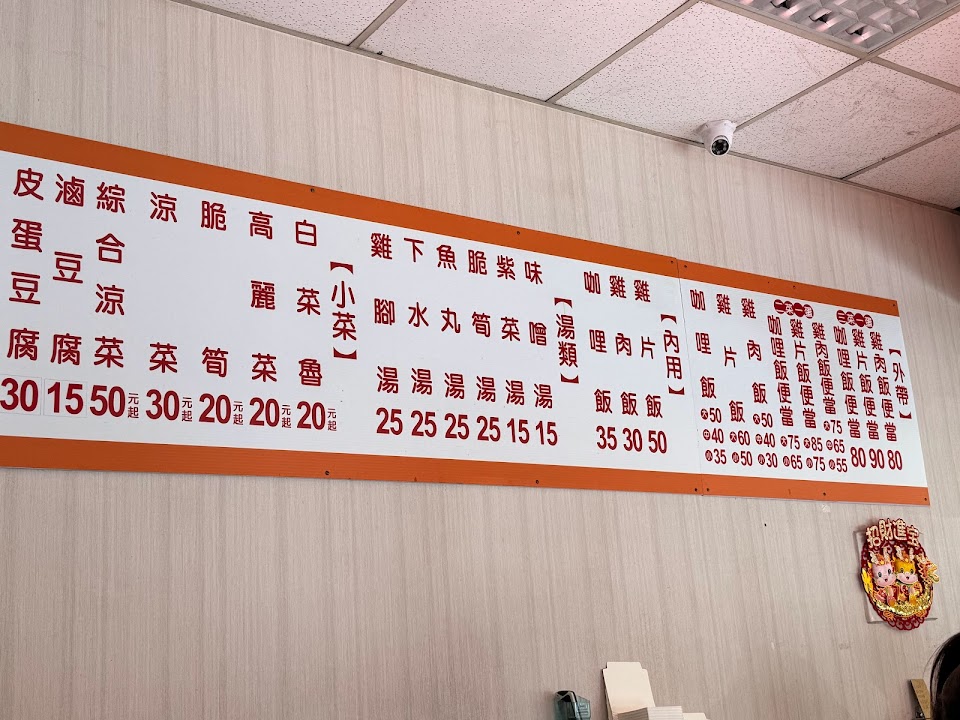 【外帶】
雞肉飯便當 80
雞片飯便當 90
咖哩飯便當 80
雞肉飯便當 大75 中65 小55
雞片飯便當 大85 小75
咖哩飯便當 大75 小65
雞肉飯 大50 中40 小30
雞片飯 大60 小50
咖哩飯 大50 中40 小35
【內用】
雞片飯 50
雞肉飯 30
咖哩飯 35
【湯類】
味噌湯 15
紫菜湯 15
脆筍湯 25
魚丸湯 25
下水湯 25
雞腳湯 25
【小菜】
白菜魯 20元起
高麗菜 20元起
脆筍 20元起
涼菜 30元起
綜合涼菜 50元起
滷豆腐 15
皮蛋豆腐 30
招財進宝